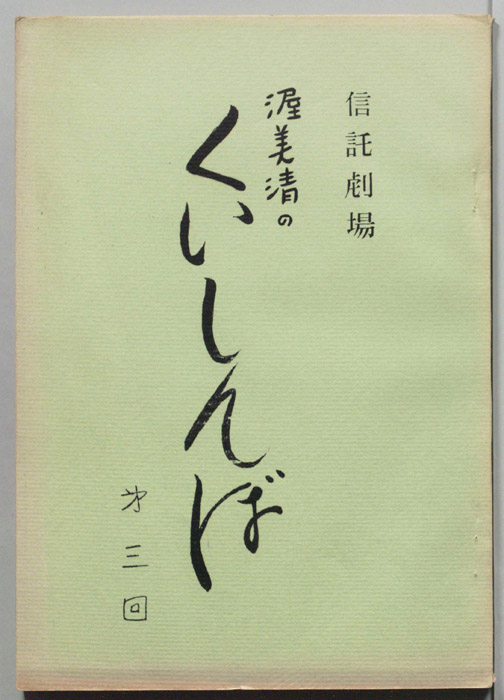 信託劇場
渥美清の
くいしんぼ
㐧三回